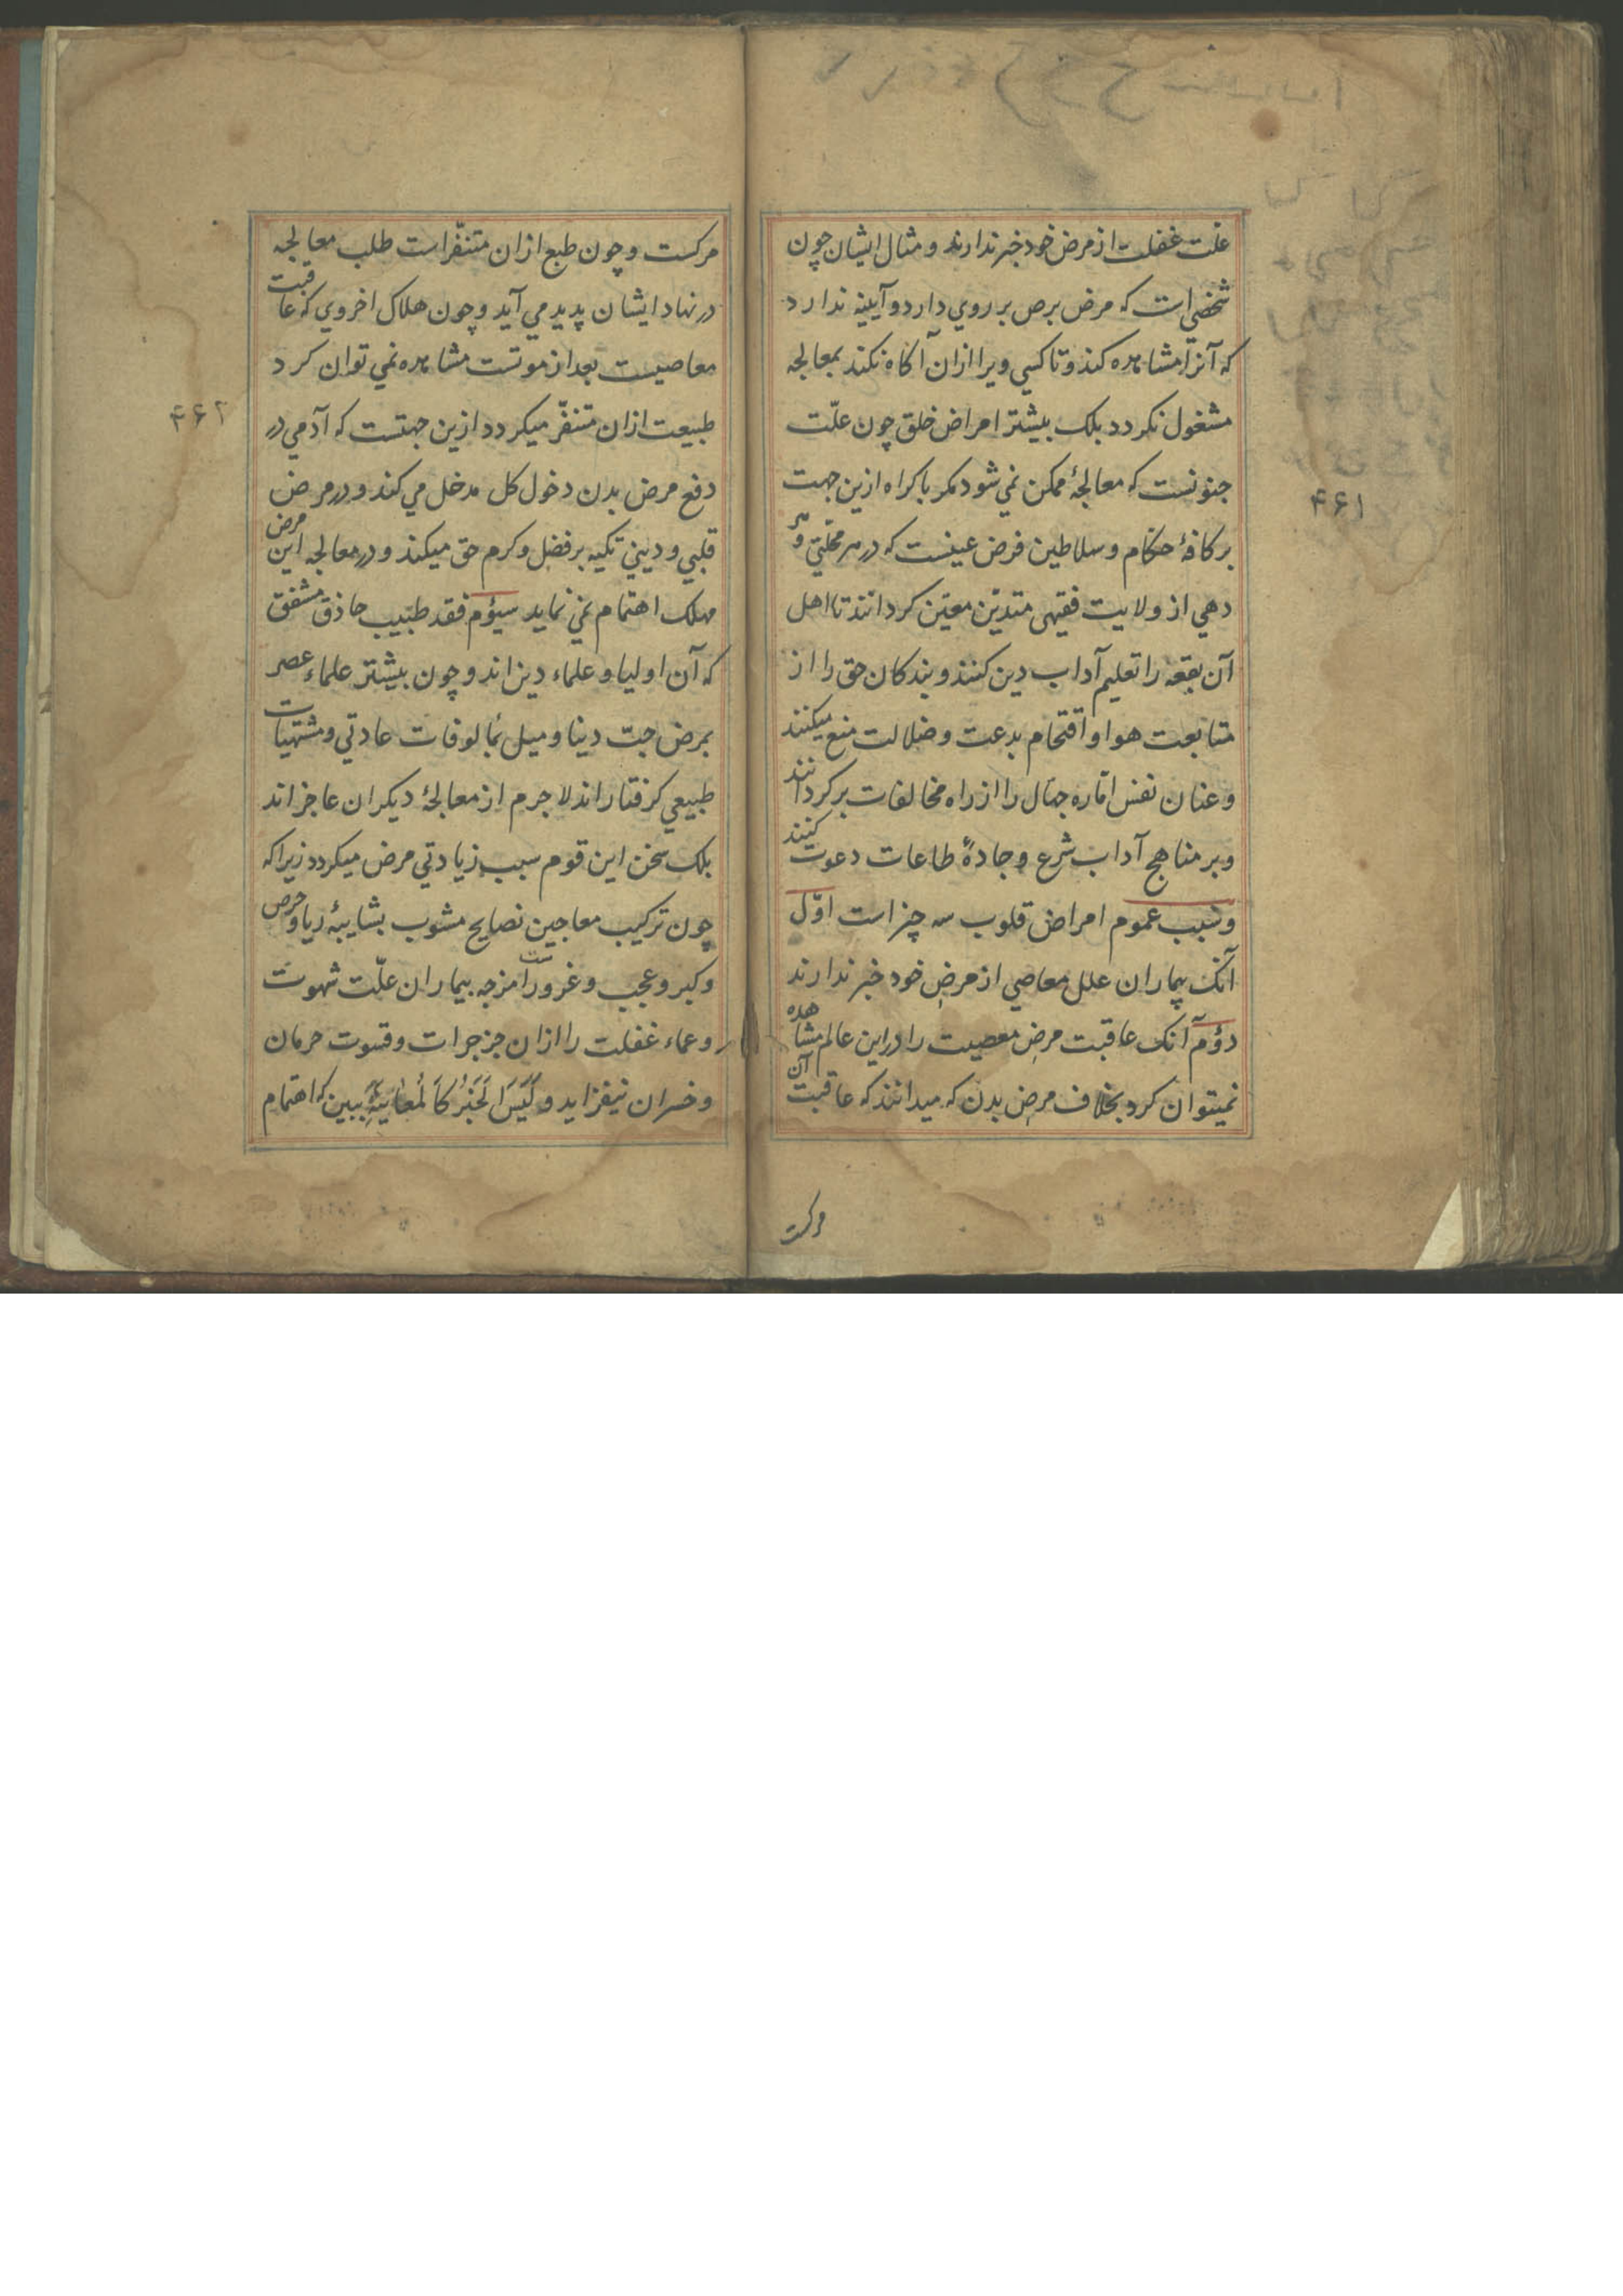 علت غفلت از مرض خود خبر ندارند و مثال ایشان چون
شخصی است که مرض برص بر روي دارد و آیینه ندارد
که آنرا مشاهده کند و تا کسي ویرا ازان آکاه نکند بمعالجه
مشغول نکردد بلک بیشتر امراض خلق چون علّت
جنونست که معالجهٔ ممکن نمي شود مکر باکراه ازین جهت
بر کافهٔ حکام و سلاطین فرض عینست که در هر محلّتي و هر
دهي از ولایت فقیهی متدیّن معیّن کردانند تا اهل
آن بقعه را تعلیم آداب دین کنند و بندکان حق را از
متابعت هوا و اقتحام بدعت و ضلالت منع میکنند
و عنان نفس امّاره جهّال را از راه مخالفات برکردانند
و بر مناهج آداب شرع و جادهٔ طاعات دعوت کنند
و سبب عموم امراض قلوب سه چیز است اوّل
آنک بیماران علل معاصي از مرض خود خبر ندارند
دوّم آنک عاقبت مرض معصیت را در این عالم مشاهده
نمیتوان کرد بخلاف مرض بدن که میدانند که عاقبت آن
مرکست
۴۶۱
مرکست و چون طبع ازان متنفّر است طلب معالجه
در نهاد ایشان پدید مي آید و چون هلاک اخروي که عاقبت
معاصیست بعد از موتست مشاهده نمي توان کرد
طبیعت ازان متنفّر میکردد ازین جهتست که آدمي در
دفع مرض بدن دخول کل مدخل مي کند و در مرض
قلبي و دیني تکیه بر فضل و کرم حق میکند و در معالجه این مرض
مهلک اهتمام نمي نماید سیوم فقد طبیب حاذق مشفق
که آن اولیا و علماء دین اند و چون بیشتر علماء عصر
بمرض حبّ دنیا و میل بمالوفات عادتي و مشتهیات
طبیعي کرفتار اند لا جرم از معالجهٔ دیکران عاجز اند
بلک سخن این قوم سبب زیادتي مرض میکردد زیرا که
چون ترکیب معاجین نصایح مشوب بشایبهٔ ریا و حرص
و کبر و عجب و غرورست امزجه بیماران علّت شهوت
و عماء غفلت را ازان جز جرات و قسوت حرمان
و خسران نیفزاید و لَیْسَ الْخَبَرُ کَالْمُعَایَنَةِ ببین که اهتمام
۴۶۲